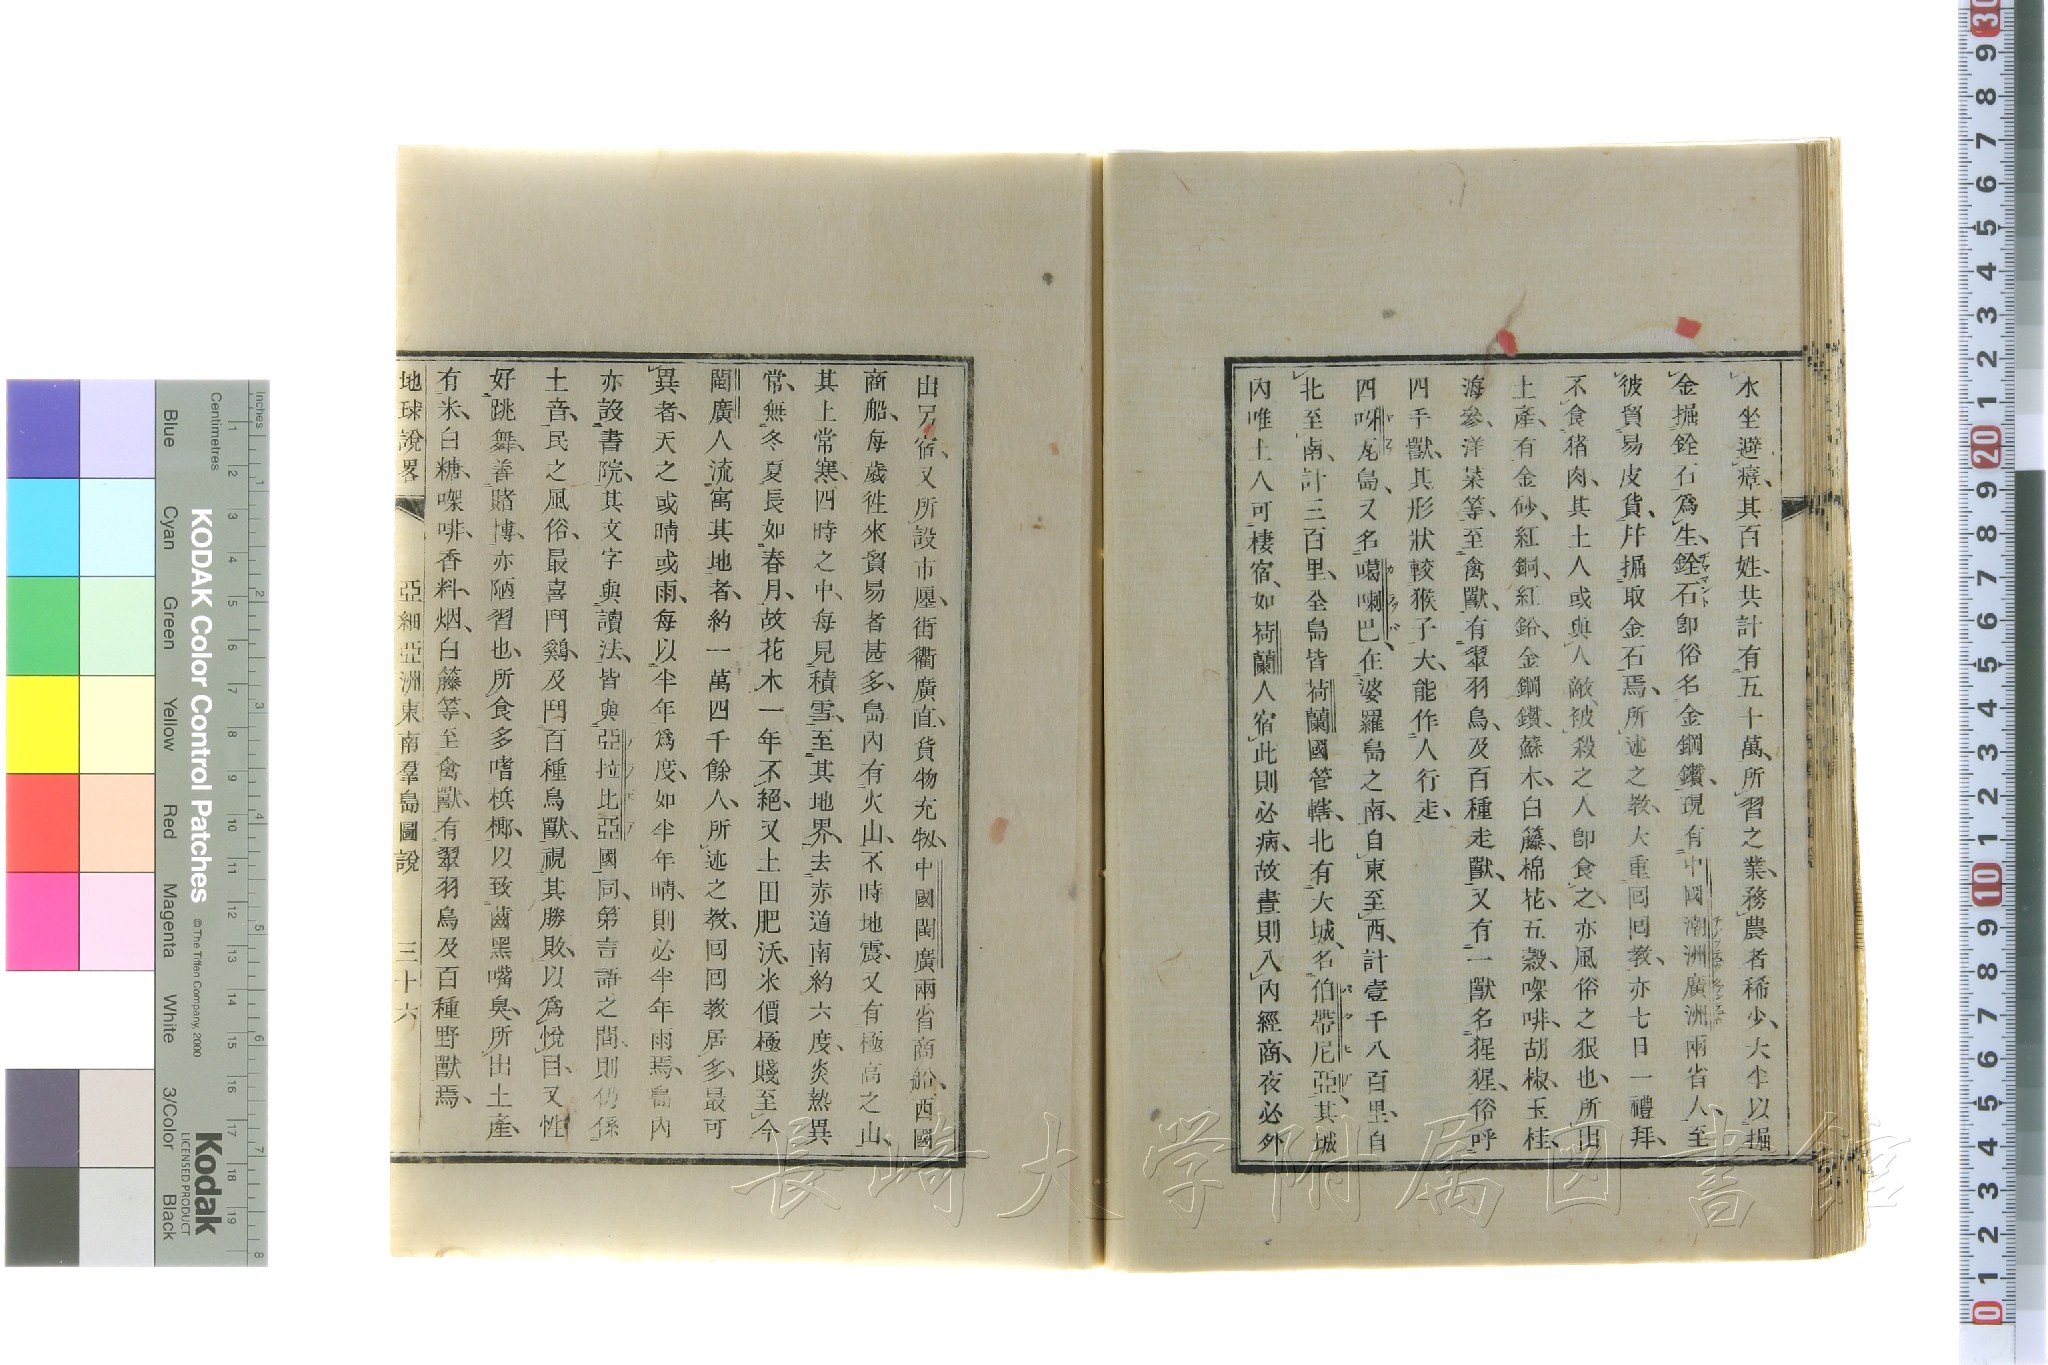 水坐避瘴其百姓共計有五十萬所習之業務農者稀少大半以掘
金掘銓石爲生銓石卽俗名金鋼鑽現有中國潮洲廣洲兩省人至
彼貿易皮貨幷掘取金石焉所述之敎大重回回敎亦七日一禮拜
不食猪肉其土人或與人敵被殺之人卽食之亦風俗之狠也所出
土產有金砂紅銅紅鉛金鋼鑽蘇木白籐棉花五穀㗎啡胡椒玉桂
海參洋菜等至禽獸有翠羽鳥及百種走獸又有一獸名猩猩俗呼
四手獸其形狀較猴子大能作人行走
四㕵尾島又名噶喇巴在婆羅島之南自東至西計壹千八百里自
北至南計三百里全島皆荷蘭國管轄北有大城名伯帶尼亞其城
內唯土人可棲宿如荷蘭人宿此則必病故晝則入內經商夜必外
出另宿又所設市廛街衢廣直貨物充牣中國閩廣兩省商船西國
商船每歲往來貿易者甚多島內有火山不時地震又有極高之山
其上常寒四時之中每見積雪至其地界去赤道南約六度炎熱異
常無冬夏長如春月故花木一年不絕又土田肥沃米價極賤至今
閩廣人流寓其地者約一萬四千餘人所述之教回回教居多最可
異者天之或晴或雨每以半年爲度如半年晴則必半年雨焉島內
亦設書院其文字與讀法皆與亞拉比亞國同第言語之間則仍係
土音民之風俗最喜鬥鷄及鬥百種鳥獸視其勝敗以爲悅目又性
好跳舞善賭博亦陋習也所食多嗜檳榔以致齒黑嘴臭所出土產
有米白糖㗎啡香料烟白籐等至禽獸有翠羽鳥及百種野獸焉
地球說畧 亞細亞洲東南羣島圖說 三十六
長崎大学附属図書館
KODAK Color Control Patches
© The Tiffen Company, 2000
Kodak
LICENSED PRODUCT
Inches
Centimetres
Blue Cyan Green Yellow Red Magenta White 3/Color Black